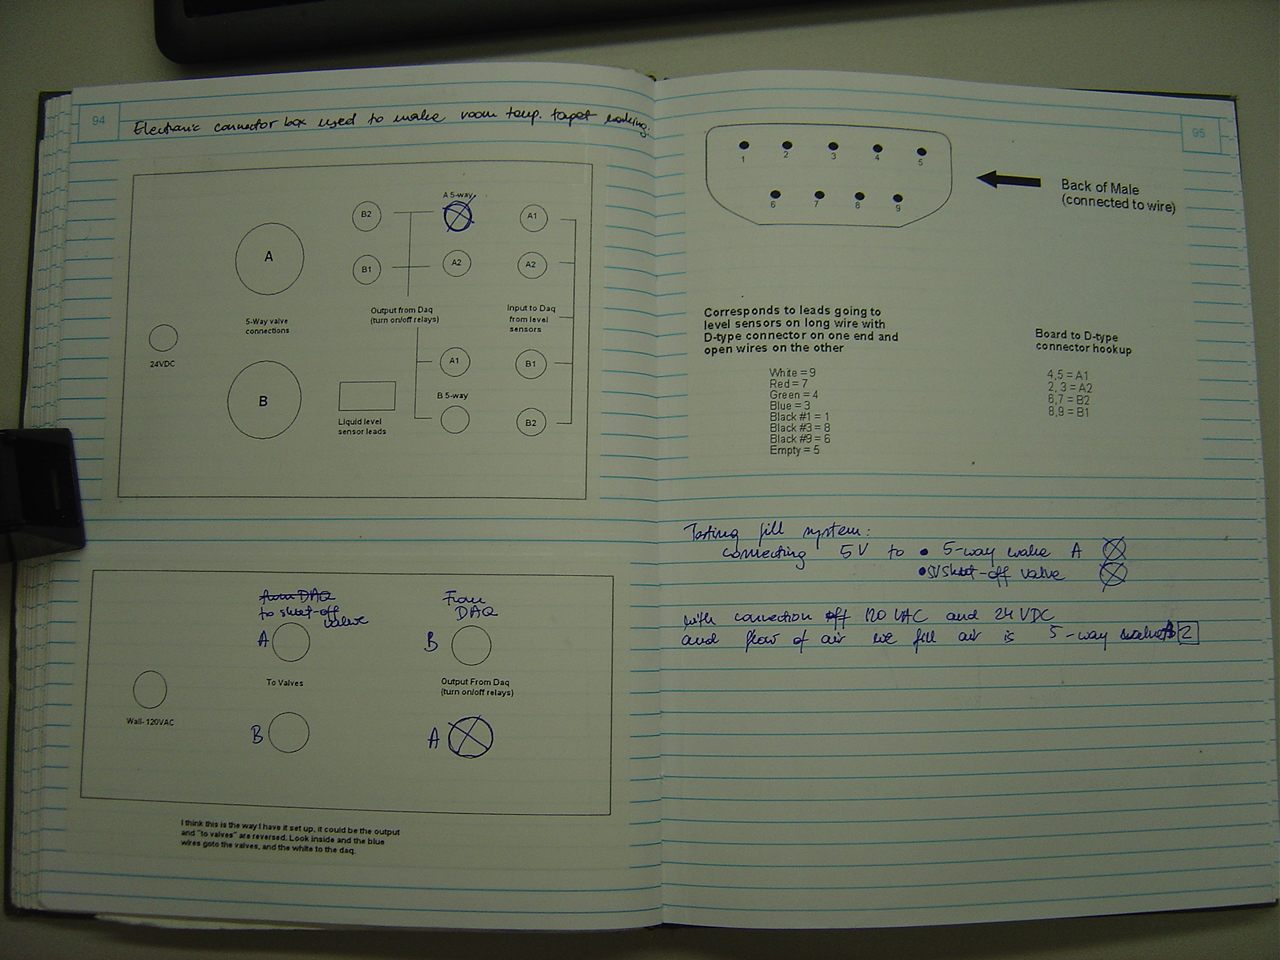 94
Electronic connector box used to make room temp. target working.
A 5-way
B2
A1
A
B1
A2
A2
5-Way valve
connections
Output from Daq
(turn on/off relays)
Input to Daq
from level
sensors
24VDC
A1
B1
B
B 5-way
Liquid level
sensor leads
B2
from DAQ
to shut-off
valve
From
DAQ
A
B
To Valves
Output From Daq
(turn on/off relays)
Wall- 120VAC
B
A
I think this is the way I have it set up, it could be the output
and "to valves" are reversed. Look inside and the blue
wires goto the valves, and the white to the daq.
95
1 2 3 4 5
6 7 8 9
Back of Male
(connected to wire)
Corresponds to leads going to
level sensors on long wire with
D-type connector on one end and
open wires on the other
White = 9
Red = 7
Green = 4
Blue = 3
Black #1 = 1
Black #3 = 8
Black #9 = 6
Empty = 5
Board to D-type
connector hookup
4,5 = A1
2, 3 = A2
6,7 = B2
8,9 = B1
Testing fill system:
connecting 5V to • 5-way valve A
• shut-off valve
with connection off 120 VAC and 24 VDC
and flow of air we fill air is 5-way valve 2